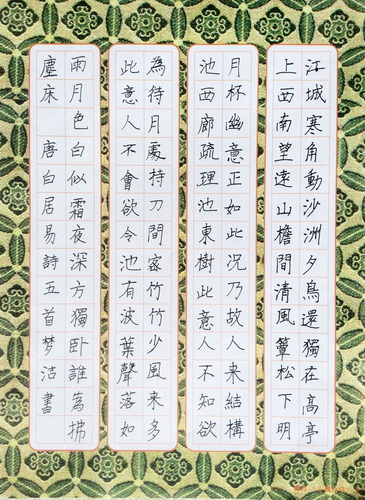 江城寒角動沙洲夕鳥還獨在高亭
上西南望遠山檐間清風簟松下明
月杯幽意正如此况乃故人来結構
池西廊疏理池東樹此意人不知欲
為待月處持刀間密竹竹少風来多
此意人不會欲令池有波葉聲落如
雨月色白似霜夜深方獨卧誰為拂
塵床 唐白居易詩五首梦洁書